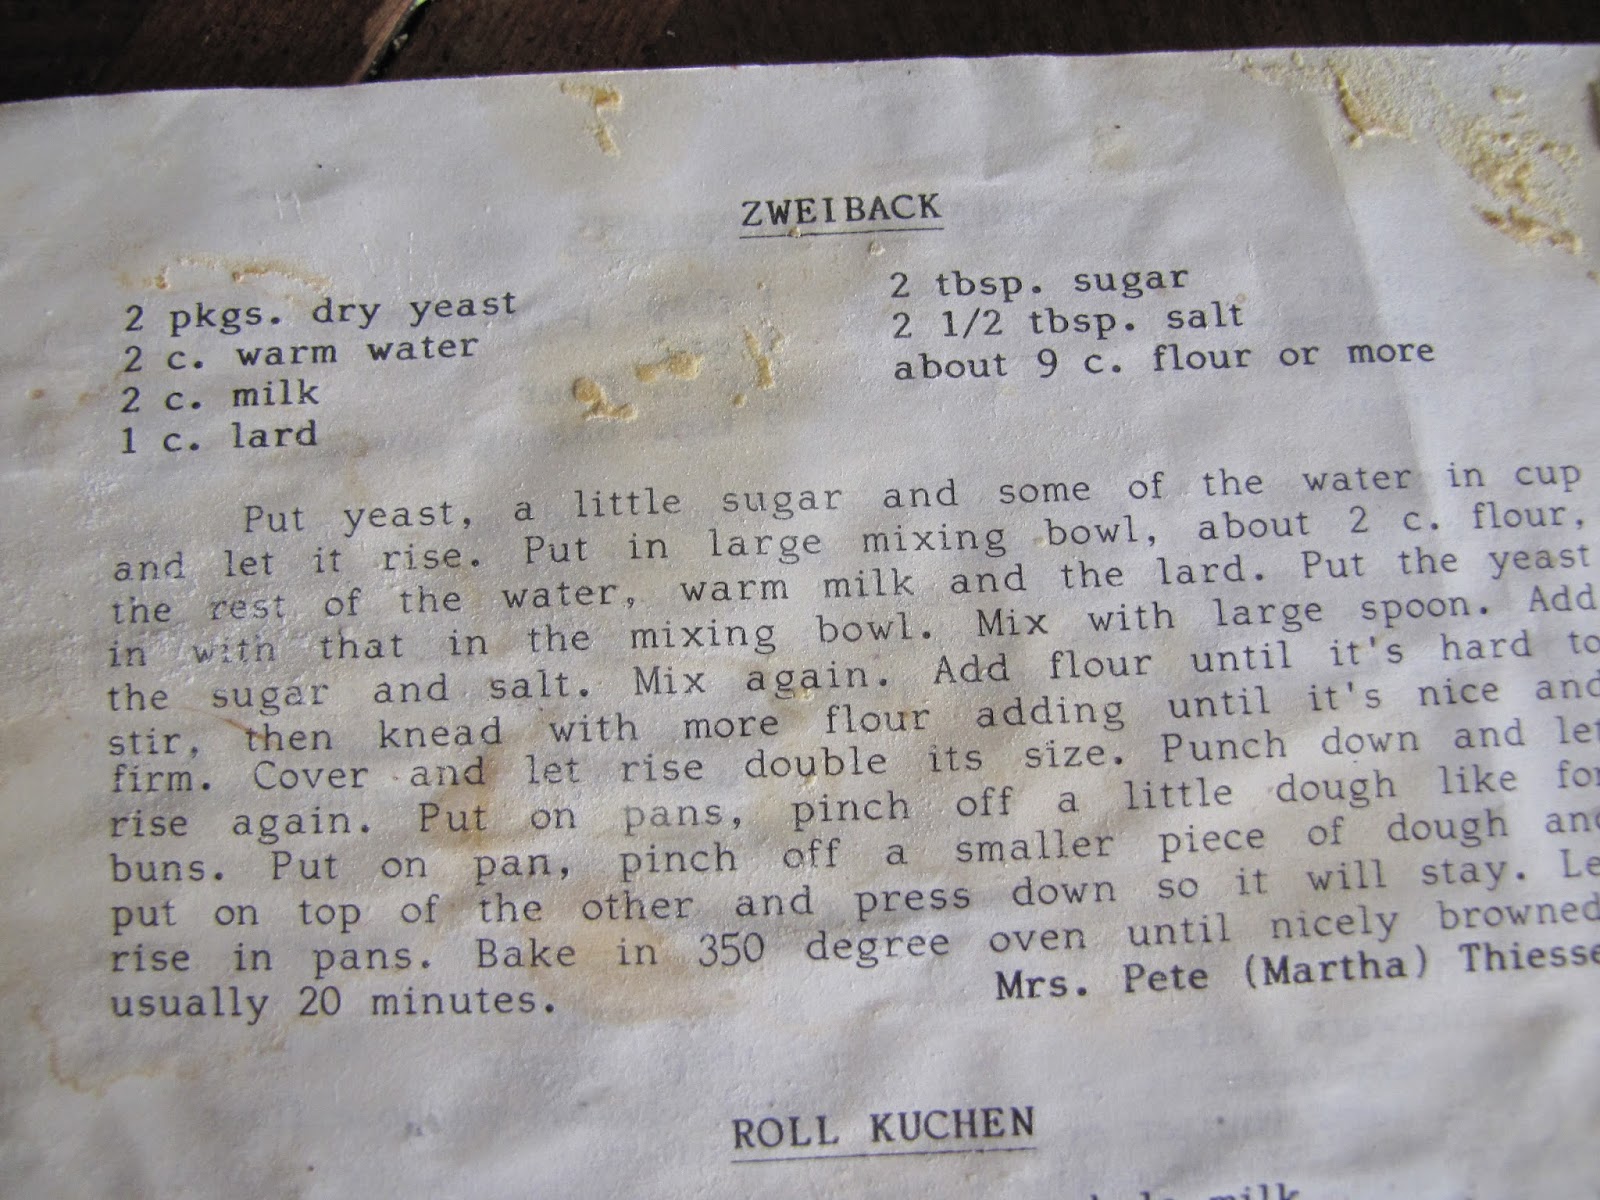 ZWEIBACK
2 pkgs. dry yeast
2 c. warm water
2 c. milk
1 c. lard
2 tbsp. sugar
2 1/2 tbsp. salt
about 9 c. flour or more
Put yeast, a little sugar and some of the water in cup
and let it rise. Put in large mixing bowl, about 2 c. flour,
the rest of the water, warm milk and the lard. Put the yeast
in with that in the mixing bowl. Mix with large spoon. Add
the sugar and salt. Mix again. Add flour until it's hard to
stir, then knead with more flour adding until it's nice and
firm. Cover and let rise double its size. Punch down and let
rise again. Put on pans, pinch off a little dough like for
buns. Put on pan, pinch off a smaller piece of dough and
put on top of the other and press down so it will stay. Le
rise in pans. Bake in 350 degree oven until nicely browned
usually 20 minutes.
Mrs. Pete (Martha) Thiesse
ROLL KUCHEN
milk